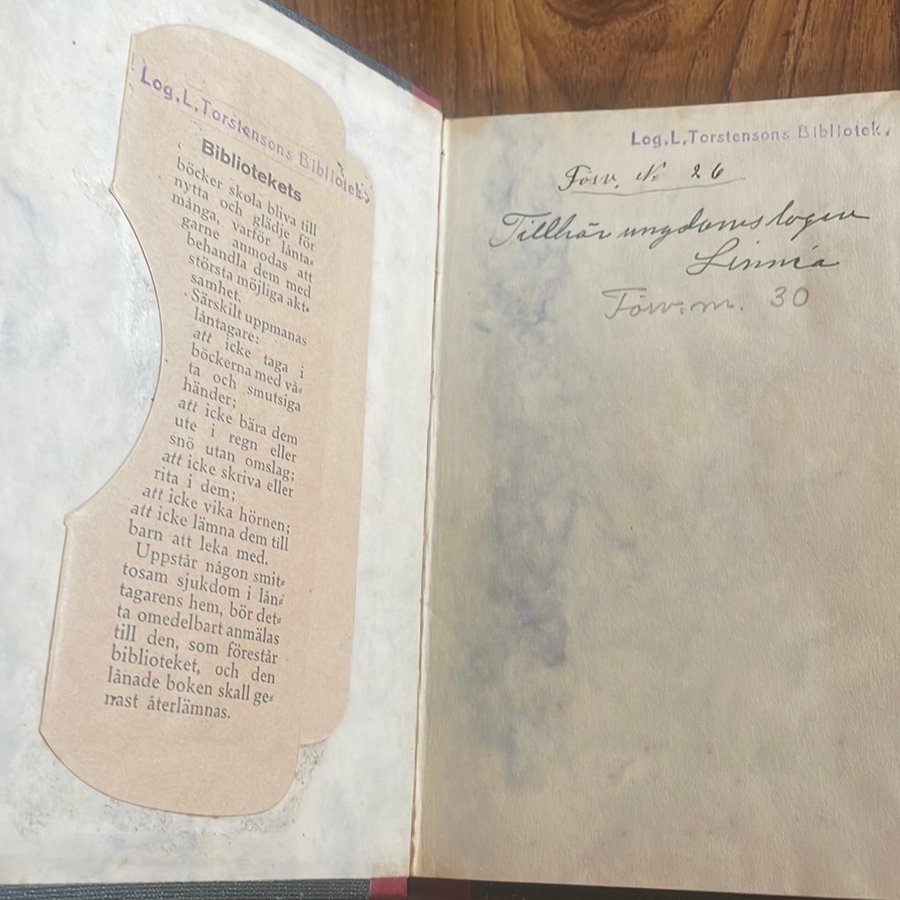 Log.L.Torstensons Bibliotek.
Bibliotekets
böcker skola bliva till
nytta och glädje för
många, varför lånta-
garne anmodas att
behandla dem med
största möjliga akt-
samhet.
Särskilt uppmanas
låntagare:
att icke taga i
böckerna med vå-
ta och smutsiga
händer;
att icke bära dem
ute i regn eller
snö utan omslag;
att icke skriva eller
rita i dem;
att icke vika hörnen;
att icke lämna dem till
barn att leka med.
Uppstår någon smit-
tosam sjukdom i lån-
tagarens hem, bör det-
ta omedelbart anmälas
till den, som förestår
biblioteket, och den
lånade boken skall ge-
nast återlämnas.
Log.L.Torstensons Bibliotek.
Förv. No 26
Tillhör ungdomslogen
Linnéa
Förv.nr. 30